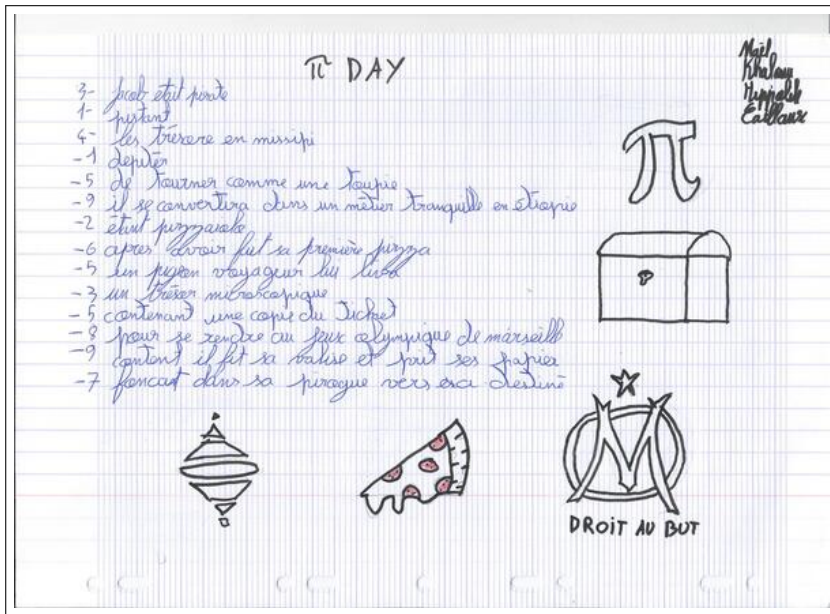 π DAY
Maël
Khalann
Hippolite
Caillaux
3- Jacob était pirate
1- pistant
4- les trésore en missipi
-1 dépiter
-5 de tourner comme une toupie
-9 il se convertira dans un métier tranquille en étiopie
-2 étant pizzaiolo
-6 apres avoir fait sa première pizza
-5 un pigeon voyageur lui livra
-3 un trésor microscopique
-5 contenant une copie du ticket
-8 pour se rendre au jeux olympique de marseille
-9 content il fit sa valise et prit ses papier
-7 foncant dans sa pirogue vers sa destiné
π
M
DROIT AU BUT